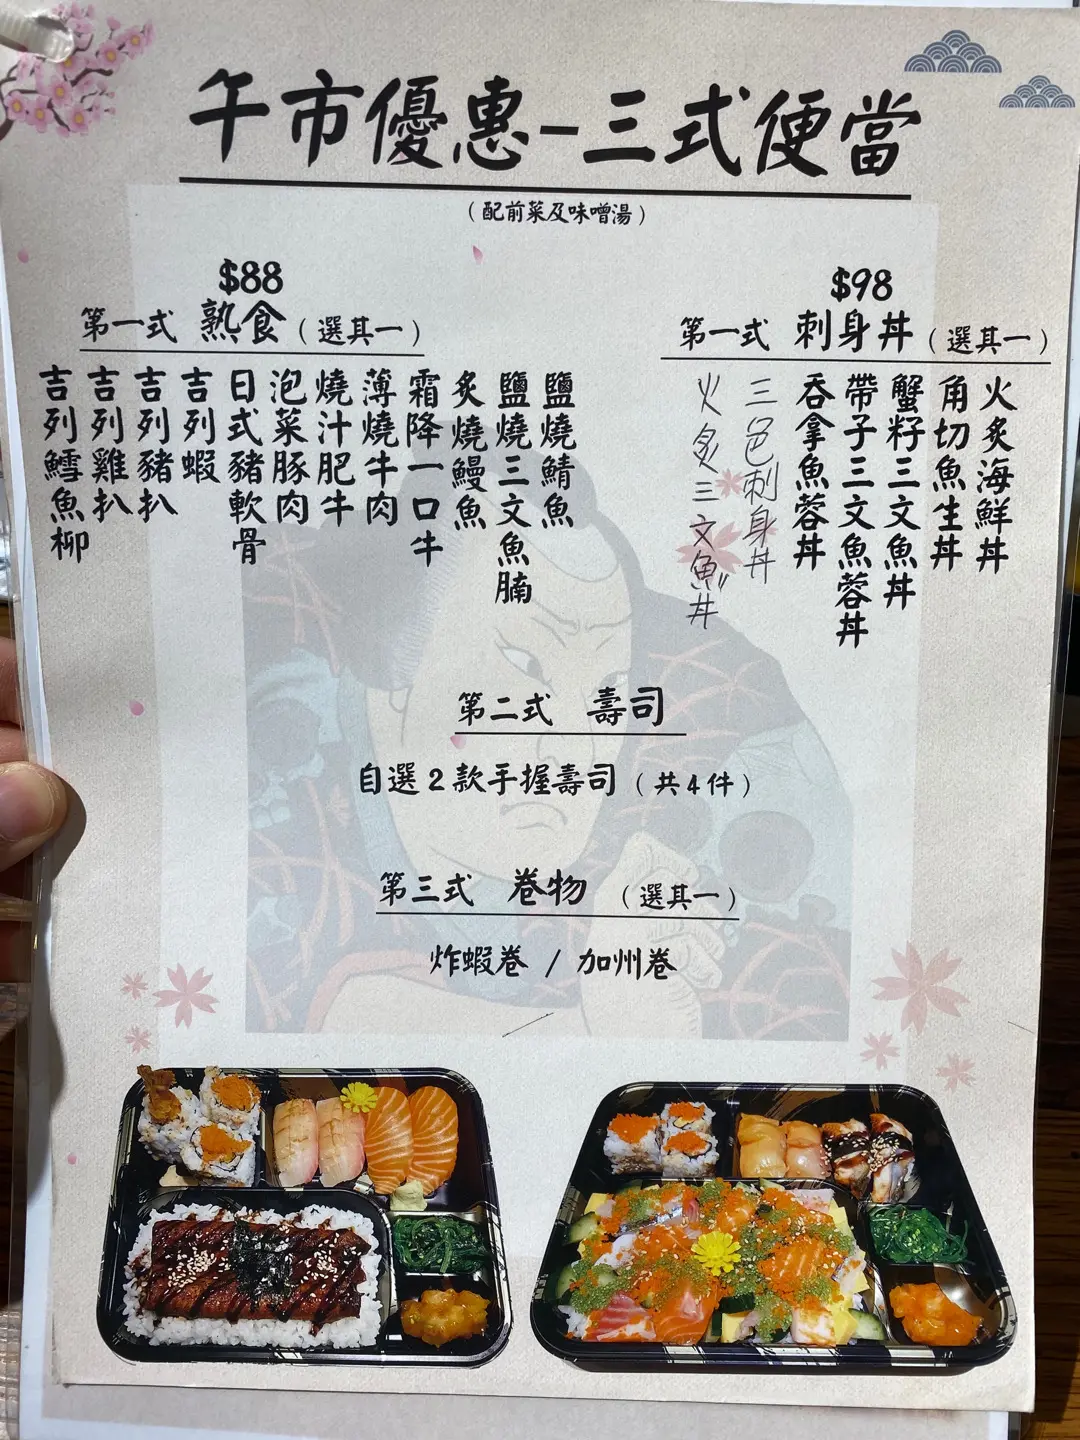 午市優惠-三式便當
（配前菜及味噌湯）
$88
第一式 熟食（選其一）
鹽燒鯖魚
鹽燒三文魚腩
炙燒鰻魚
霜降一口牛
薄燒牛肉
燒汁肥牛
泡菜豚肉
日式豬軟骨
吉列蝦
吉列豬扒
吉列雞扒
吉列鱈魚柳
$98
第一式 刺身丼（選其一）
火炙海鮮丼
角切魚生丼
蟹籽三文魚丼
帶子三文魚蓉丼
吞拿魚蓉丼
三色刺身丼
火炙三文魚丼
第二式 壽司
自選2款手握壽司（共4件）
第三式 卷物 （選其一）
炸蝦卷 / 加州卷